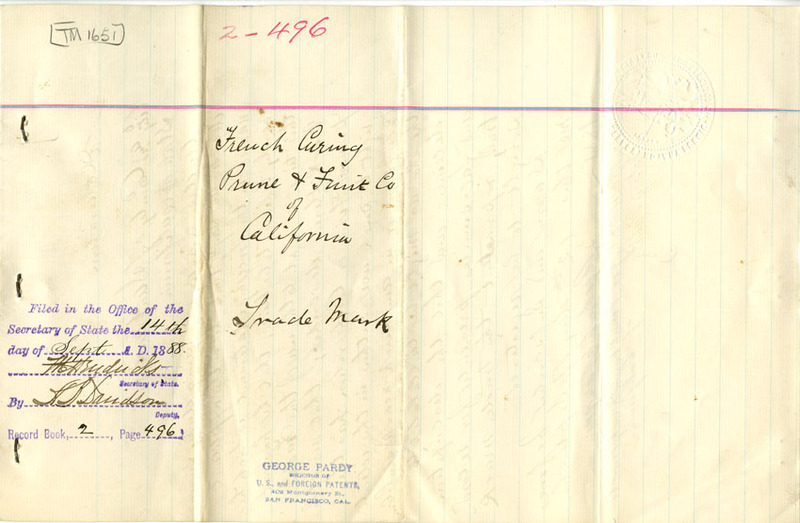 TM 1651
2-496
French Curing
Prune & Fruit Co
of
California
Trade Mark
Filed in the Office of the
Secretary of State the 14th
day of Sept A. D. 1888.
Secretary of State.
By Davidson
Deputy.
Record Book, 2, Page 496
GEORGE PARDY
SOLICITOR OF
U. S., and FOREIGN PATENTS,
Montgomery St.,
SAN FRANCISCO, CAL.